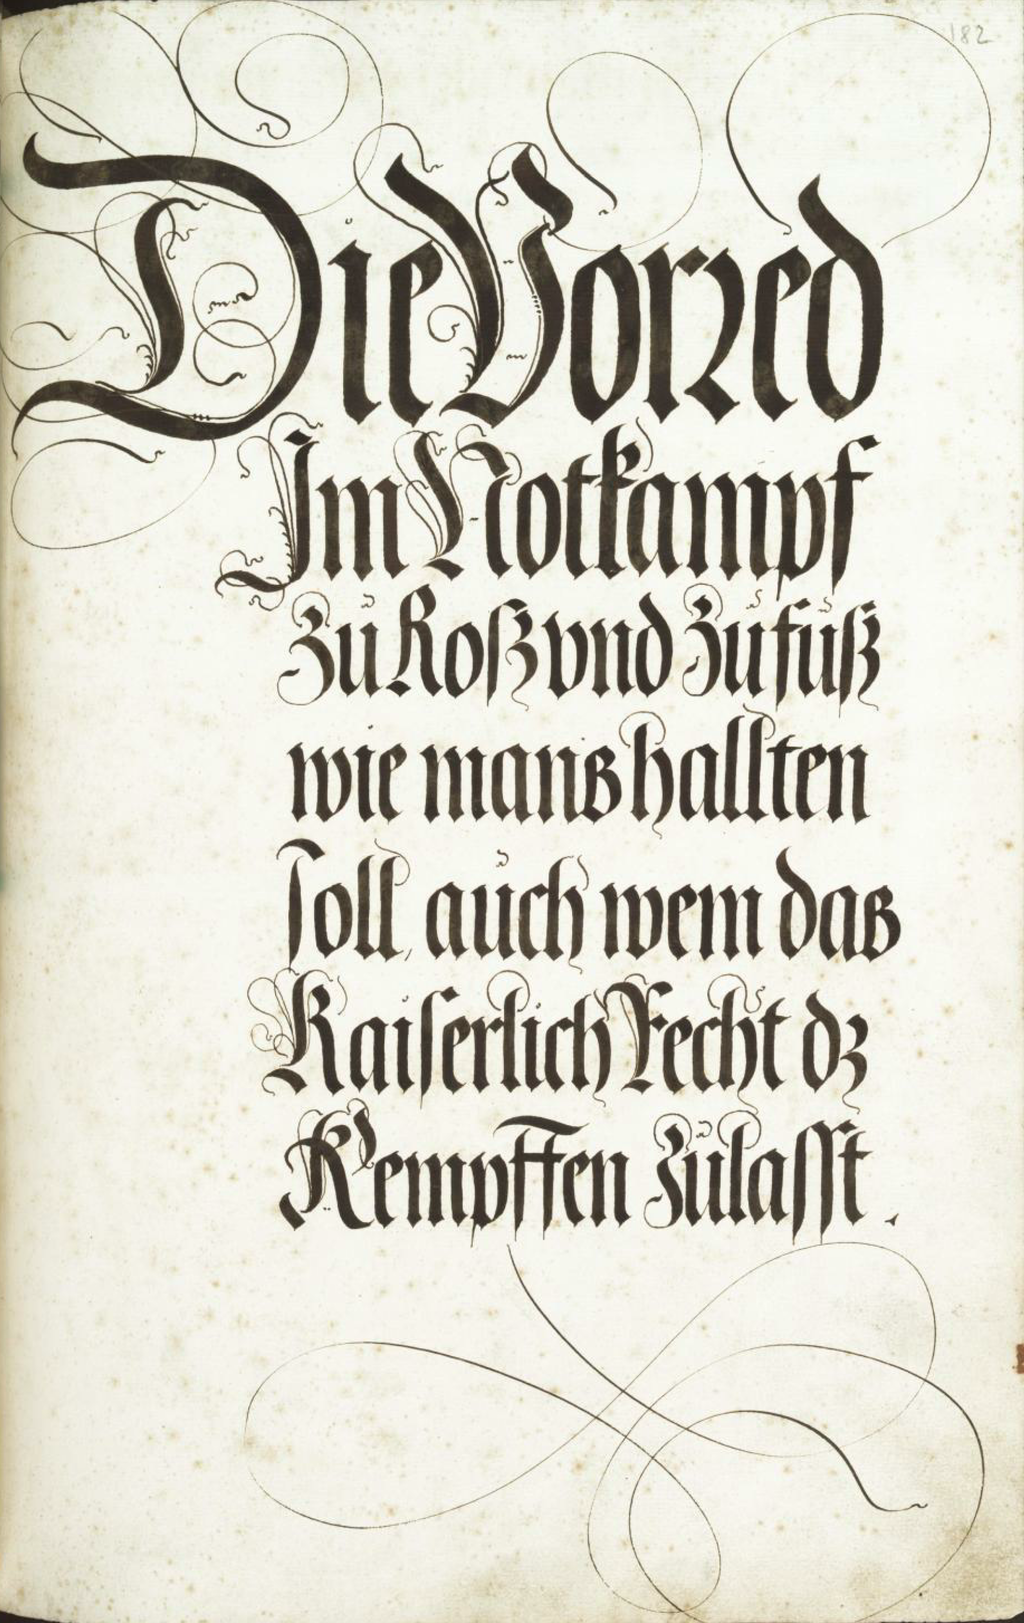 182
Die Vorred
Im Notkampf
Zů Roß vnd Zů fůß
wie mans hallten
soll, aůch wem das
Kaiserlich Recht dz
Kempffen Zůlasst.